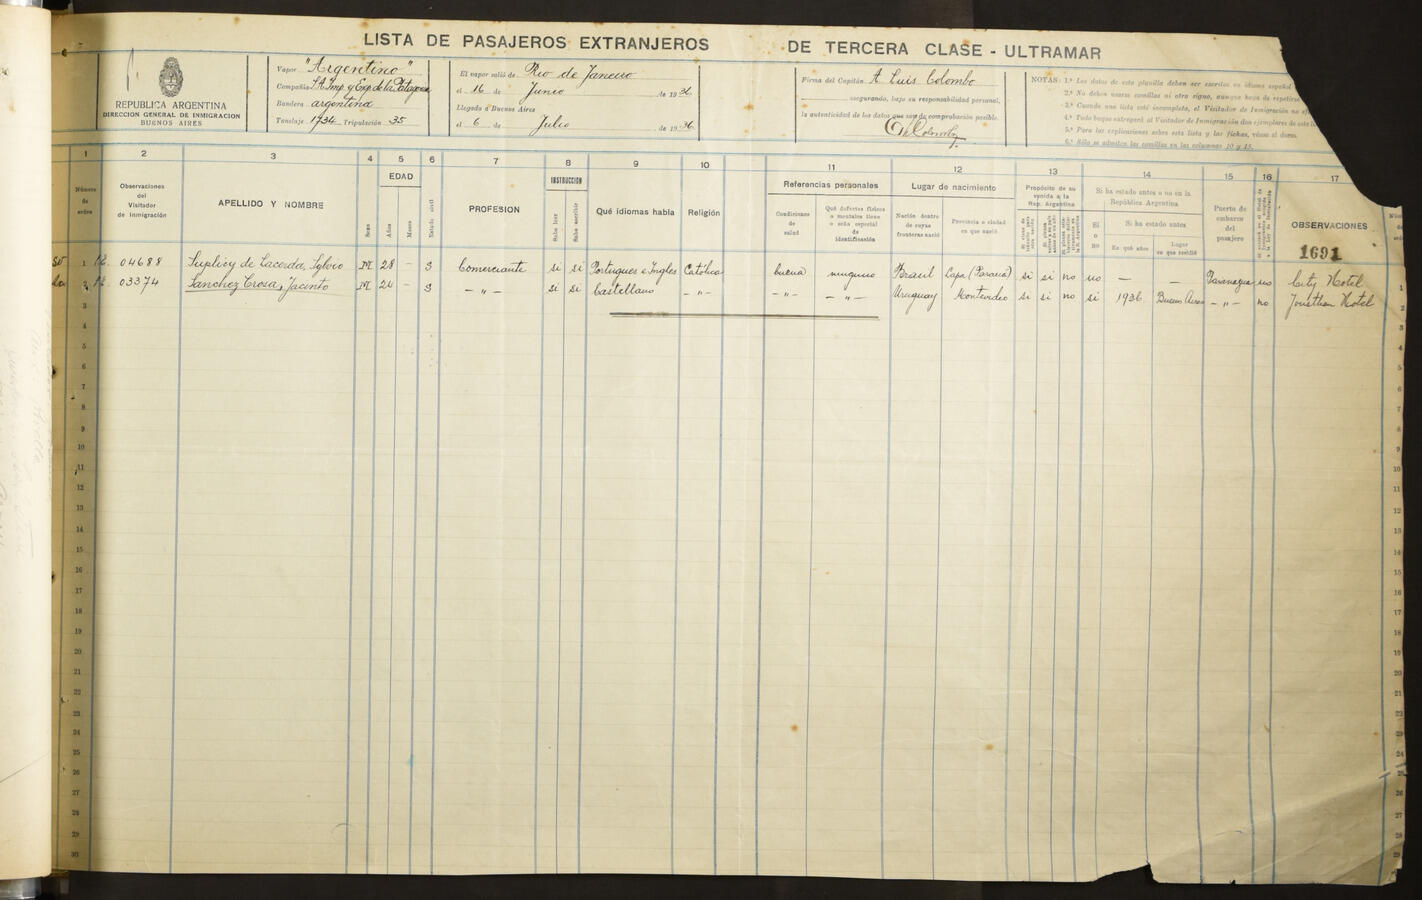 LISTA DE PASAJEROS EXTRANJEROS DE TERCERA CLASE - ULTRAMAR
REPUBLICA ARGENTINA
DIRECCION GENERAL DE INMIGRACION
BUENOS AIRES
Vapor "Argentino"
Compañia S.A. Imp. y Exp. de la Patagonia
Bandera argentina
Tonelaje 1734 Tripulación 35
El vapor salió de Rio de Janeiro
el 16 de Junio de 1936
Llegado a Buenos Aires
el 6 de Julio de 1936
Firma del Capitán A. Luis Colombo
asegurando, bajo su responsabilidad personal,
la autenticidad de los datos que son de comprobación posible.
NOTAS: 1.ª Los datos de esta planilla deben ser escritos en idioma español
2.ª No deben usarse comillas ni otro signo, aunque haya de repetirse
3.ª Cuando una lista esté incompleta, el Visitador de Inmigración no
4.ª Todo buque entregará al Visitador de Inmigración dos ejemplares de esta
5.ª Para las explicaciones sobre esta lista y las fichas, véase al dorso.
6.ª Sólo se admiten las comillas en las columnas 10 y 15.
1 2 3 4 5 6 7 8 9 10 11 12 13 14 15 16 17
Número de orden
Observaciones del Visitador de Inmigración
APELLIDO Y NOMBRE
Sexo
EDAD
Años
Meses
Estado civil
PROFESION
INSTRUCCION
Sabe leer
Sabe escribir
Qué idiomas habla
Religión
Referencias personales
Condiciones de salud
Qué defectos físicos o mentales tiene o seña especial de identificación
Lugar de nacimiento
Nación dentro de cuyas fronteras nació
Provincia o ciudad en que nació
Propósito de su venida a la Rep. Argentina
Si ha estado antes o no en la República Argentina
Si o no
Si ha estado antes
En qué años
Lugar en que residió
Puerto de embarco del pasajero
OBSERVACIONES
1691
1 04688 Suplicy de Lacerda, Sylvio M 28 - S Comerciante si si Portugues e Ingles Católica buena ninguno Brasil Lapa (Paraná) si si no no - - Paranagua no City Hotel
2 03374 Sanchez Crosa, Jacinto M 24 - S - " - si si Castellano - " - - " - - " - Uruguay Montevideo si si no si 1936 Buenos Aires - " - no Jousten Hotel
3
4
5
6
7
8
9
10
11
12
13
14
15
16
17
18
19
20
21
22
23
24
25
26
27
28
29
30